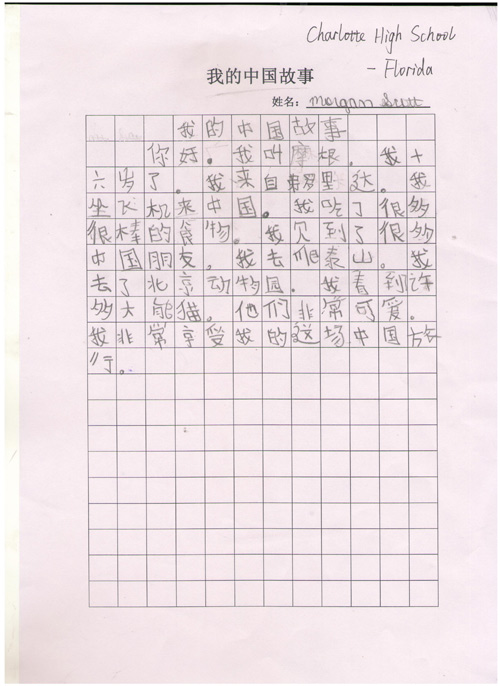 Charlotte High School
- Florida
我的中国故事
姓名: Morgan Scott
我的中国故事
你好。我叫摩根。我十
六岁了。我来自弗罗里达。我
坐飞机来中国。我吃了很多
很棒的食物。我交到了很多
中国朋友。我去爬泰山。我
去了北京动物园。我看到许
多大能猫。他们非常可爱。
我非常享受我的这场中国旅
行。